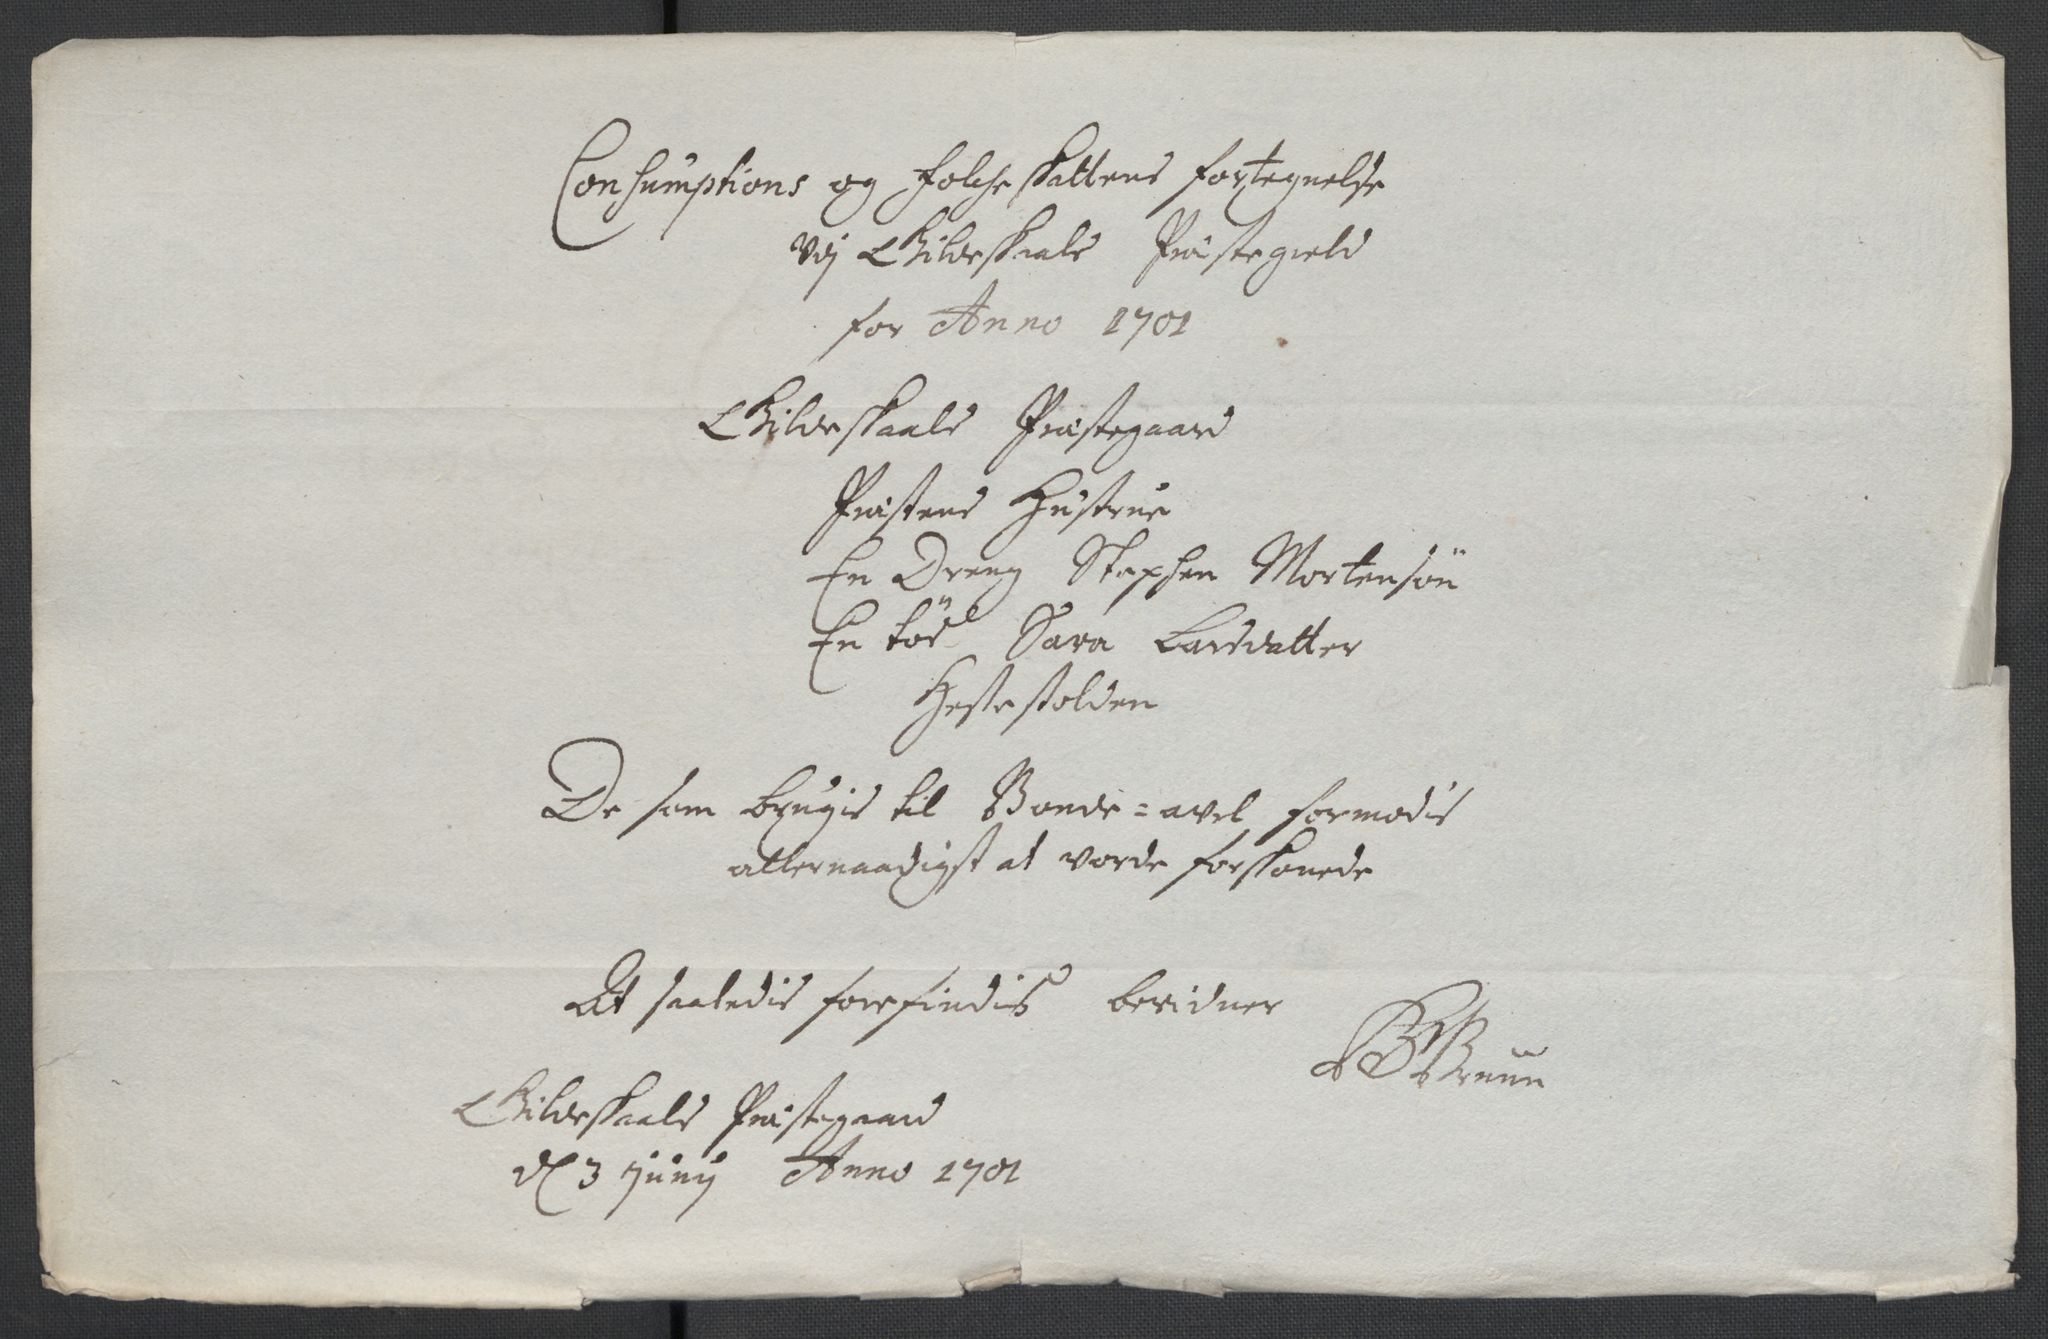 Consumptions og folcheskattens fortegnelse
Vdj Gildeskaals Præstegield
for Anno 1701
Gildeskaals Præstegaard
Præstens Hustrue
En Dreng Stephen Mortensøn
En tös Sara Larsdatter
Hesteholden
De som brugis til Bonde=avel formodis
allernaadigst at vorde forskonede
At saaledis forefindis bevidner
GBruun
Gildeskaals Præstegaard
dl 3 Junij Anno 1701